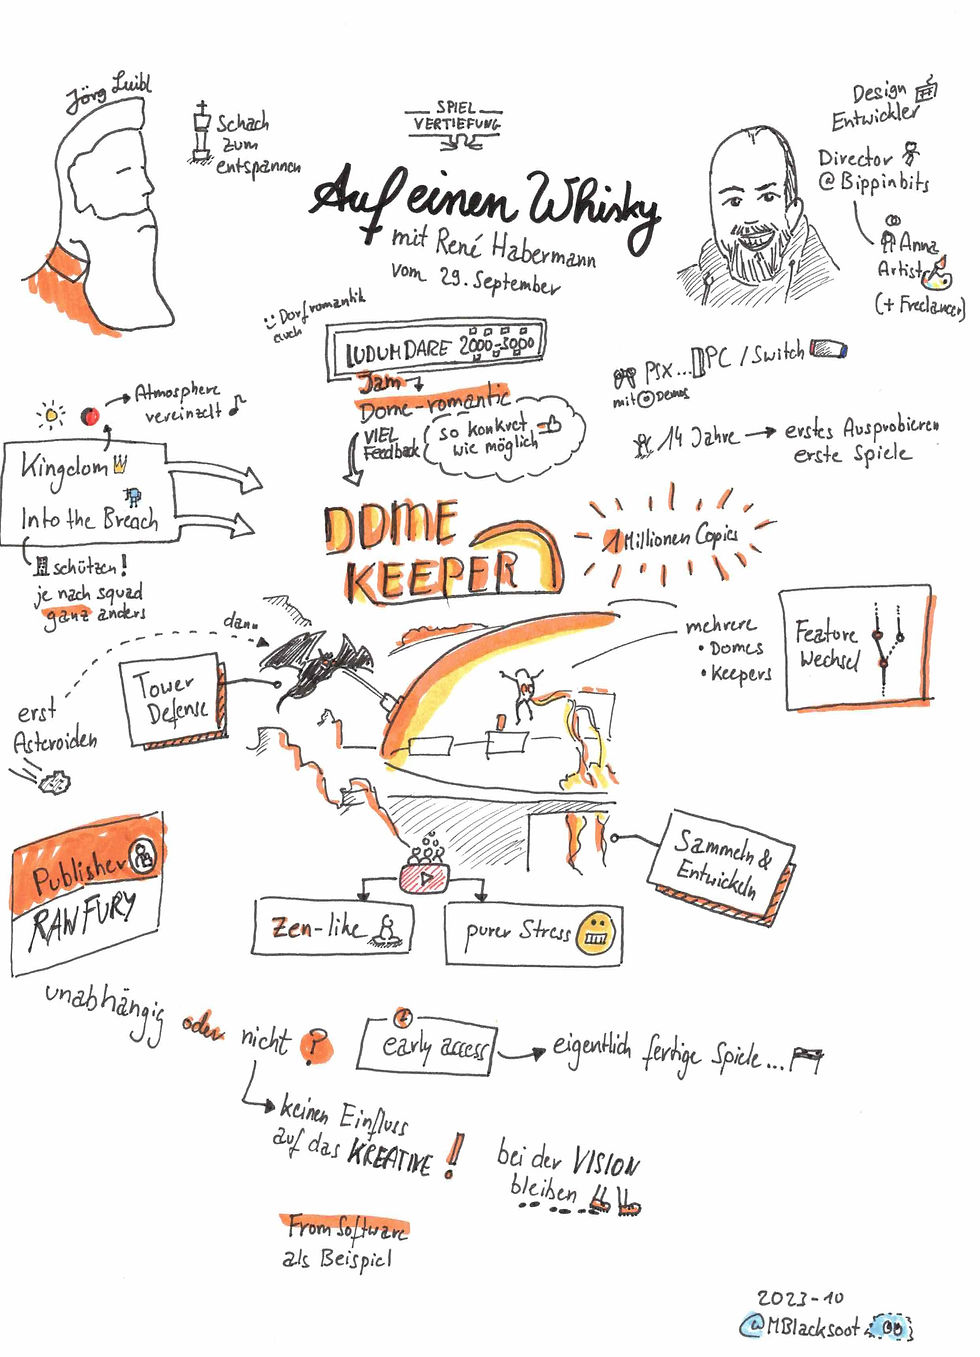 Jörg Luibl
Schach
zum
entspannen
SPIEL
VERTIEFUNG
Auf einen Whisky
mit René Habermann
vom 29. September
Design
Entwickler
Director
@Bippinbits
Anna
Artist
(+ Freelancer)
Dorfromantik
auch
LUDUM DARE 2000-3000
Jam
Dome-romantic
VIEL
Feedback
so konkret
wie möglich
PSX... PC / Switch
mit Demos
14 Jahre → erstes Ausprobieren
erste Spiele
Atmosphere
vereinzelt
Kingdom
Into the Breach
schützen!
je nach squad
ganz anders
DOME
KEEPER
1 Millionen Copies
dann
Tower
Defense
erst
Asteroiden
mehrere
• Domes
• Keepers
Feature
Wechsel
Sammeln &
Entwickeln
Publisher
RAW FURY
Zen-like
purer Stress
unabhängig oder nicht ?
early access
eigentlich fertige Spiele...
keinen Einfluss
auf das KREATIVE !
bei der VISION
bleiben
From Software
als Beispiel
2023-10
@MBlacksoot